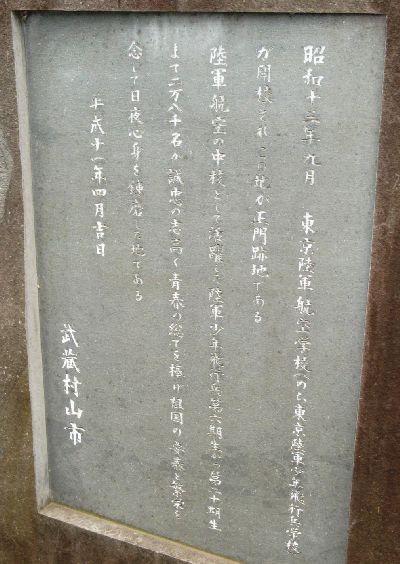 昭和十三年九月 東京陸軍航空学校(のち東京陸軍少年飛行兵学校)
が開校されこの地が正門跡地である
陸軍航空の中核として活躍した陸軍少年飛行兵第六期生から第二十期生
まで二万八千名が誠忠の志高く青春の総てを捧げ祖国の安泰と繁栄を
念じて日夜心身を錬磨した地である
平成十一年四月吉日
武蔵村山市